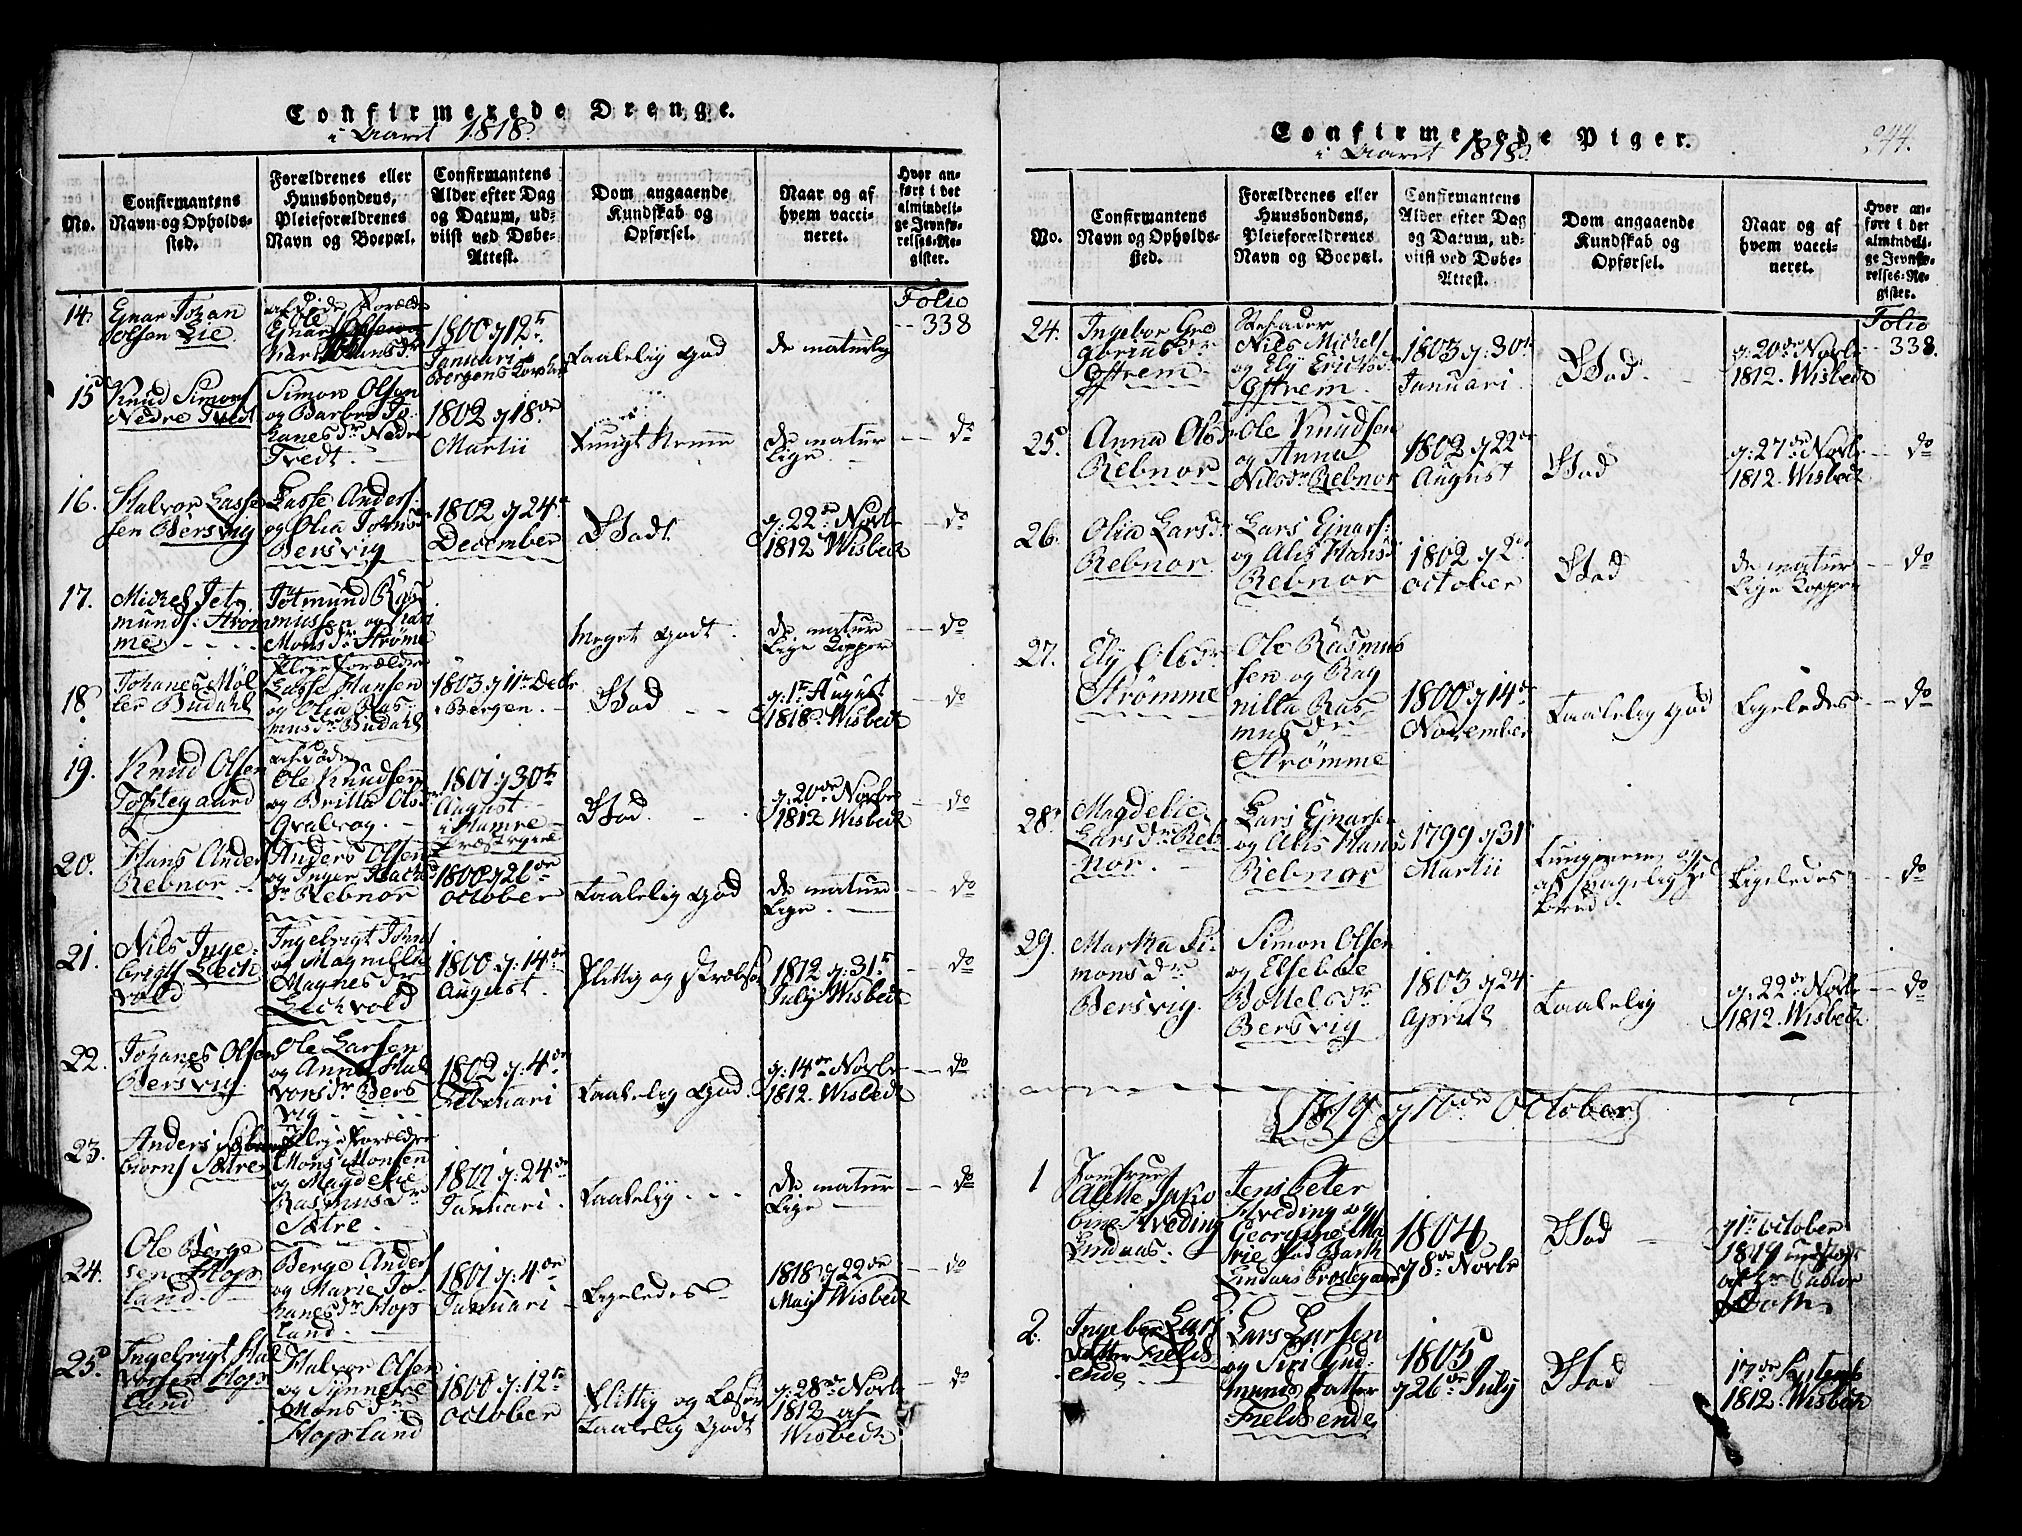 Confirmerede Drenge.
i Aaret 1818.
No.
Confirmantens Navn og Opholds-sted.
Forældrenes eller Huusbondens, Pleieforældrenes Navn og Boepæl.
Confirmantens Alder efter Dag og Datum, ud-viist ved Døbe-Attest.
Dom angaaende Kundskab og Opførsel.
Naar og af hvem vacci-neret.
Hvor an-ført i det almindeli-ge Jevnfø-relses-Re-gister.
Folio
14. Ejnar Johan
Olsen Lie
1800 d 12te
Januari
Bergens
Taalelig god
de naturlig
338
15 Knud Simons
Nedre Tvedt
Simon Olsen
og Barbro Jo
hanesdr Nedre
Tvedt.
1802 d 18de
Martii
de natur
lige
do
16. Halvor Lasse
sen Bersvig
Lasse Anders
og Olia Johns
Bersvig
1802 d 24de
December
Godt
d: 22de Novbr
1812 Wisbech
do
17. Michel Jet
munds: Strøm
me
Jetmund Ras
mussen og
Monsdr Strøme
Meget Godt.
de natur
lige Kopper
do
18 Johanes Møl
ler Budahl
Pleje Forældre
Lasse Hansen
og Olia Ras
musdr Budahl
1803 d 11te Decbr
i Bergen.
God
d: 1te August
1818. Wisbech
do
19. Knud Olsen
Toftegaard
af døde
Ole Knudsen
og Britta Ols
1801 d 30te
August
i Hamre
Præstegield
God.
d: 20de Novbr
1812 Wisbech
do
20. Hans Anders
Rebnor
Anders Olsen
og Inger
dr Rebnor
1800 d 26de
October
Taalelig God
de natur
lige.
do
21. Nils Inge-
brigts Lech
vold
Ingebrigt Johns
og Magnilla
Magnesdr
Lechvold
1800 d: 14de
August.
Flittig og
1812 d: 31te
July Wisbech
do
22. Johanes Olsen
Bersvig
Ole Larsen
og Anna Hal
vorsdr Bers
vig
1802 d: 4de
Februari
Taalelig God
d: 14de Novbr
1812. Wisbech
do
23. Anders
biørns Sætre
Pleje Forældre
Mons Monsen
og Magdelie
Rasmusdr
Sætre.
1801 d: 24de
Januari.
Taalelig
de natur
lige
do
24. Ole Berge
sen Hops
land.
Berge Anders
og Marie Jo-
hanesdr Hops
land.
1801 d: 4de
Januari
Ligeledes
1818 d 22de
May Wisbech
do
25. Ingebrigt Hal
vorsen Hops
land
Halvor Olsen
og Synneve
Monsdr
Hopsland
1800 d: 12te
October
Flittig og Læser
Taalelig Godt
d: 28de Novbr
1812 af
Wisbech
do
Confirmerede Piger.
i Aaret 1818.
244.
No.
Confirmantens Navn og Opholds-sted.
Forældrenes eller Huusbondens, Pleieforældrenes Navn og Boepæl.
Confirmantens Alder efter Dag og Datum, ud-viist ved Døbe-Attest.
Dom angaaende Kundskab og Opførsel.
Naar og af hvem vacci-neret.
Hvor an-ført i det almindeli-ge Jevnfø-relses-Re-gister.
Folio
24. Ingebor Gre
goriusdr
Ystrem
Stefader
Nils Michels
og Ely Ericksdr
Ystrem.
1803 d: 30te
Januari
God.
d: 20de Novbr
1812. Wisbech
338.
25. Anna Olsdr
Rebnor
Ole Knudsen
og Anna
Nilsdr Rebnor
1802 d 22de
August
God
d: 27de Novbr
1812. Wisbech
do
26. Olia Larsdr
Rebnor
Lars Ejnars:
og Alis Hansdr
Rebnor
1802 d 2den
October
God
de natur
lige Kopper
do
27. Ely Olsdr
Strømme
Ole Rasmus
sen og Rag
nilla Ras
musdr
Strømme
1800 d 14de
November
Taalelig God
Ligeledes
do
28. Magdelie
Larsdr Reb
nor.
Lars Ejnarsen
og Alis Hans
Rebnor
1799 d 31te
Martii
Ligeledes
do
29. Martha Si
monsdr
Bersvig.
Simon Olsen
og Elsebee
Bottelsdr
Bersvig
1803 d 24
April
Taalelig
d: 22de Novbr
1812. Wisbech
do
1819 d 10de October
1 Jomfrue
Alette Jaco
bine Hveding
Lindaas.
Jens Peter
Hveding og
Georgine Ma
rie
Lindaas Præstegaard
1804
d 8de Novbr
God
d 1te October
1819
2. Ingebor Lars
datter Fields
ende
Lars Larsen
og Siri Gud-
munds Datter
Fieldsende
1805
d 26de July
God
17de Septemb
1812. Wisbech